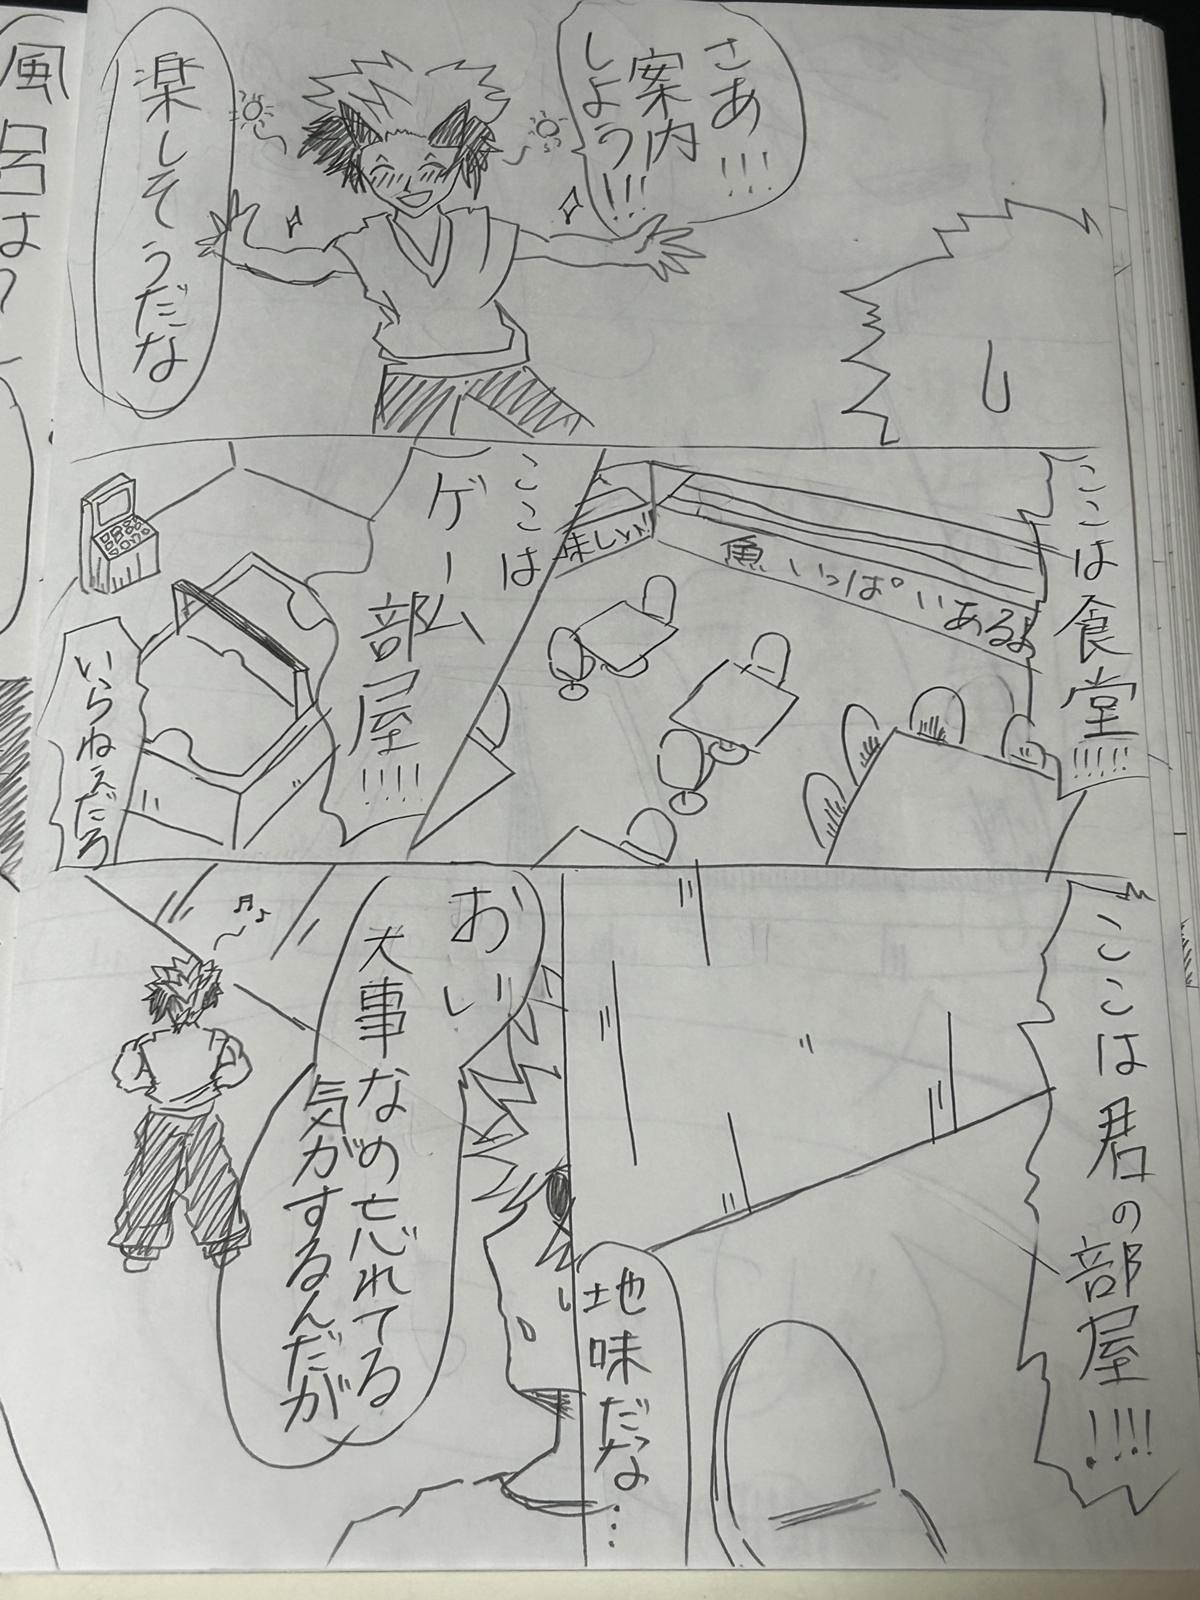 さあ
案内
しよう!!!
!!!
楽しそうだな
ここは食堂!!!!
魚いっぱいあるよ
味しい!!
ここは
ゲーム
部屋!!!!
いらねぇだろ
ここは君の部屋!!!!
地味だな…
おい
大事なの忘れてる
気がするんだが
風呂は?